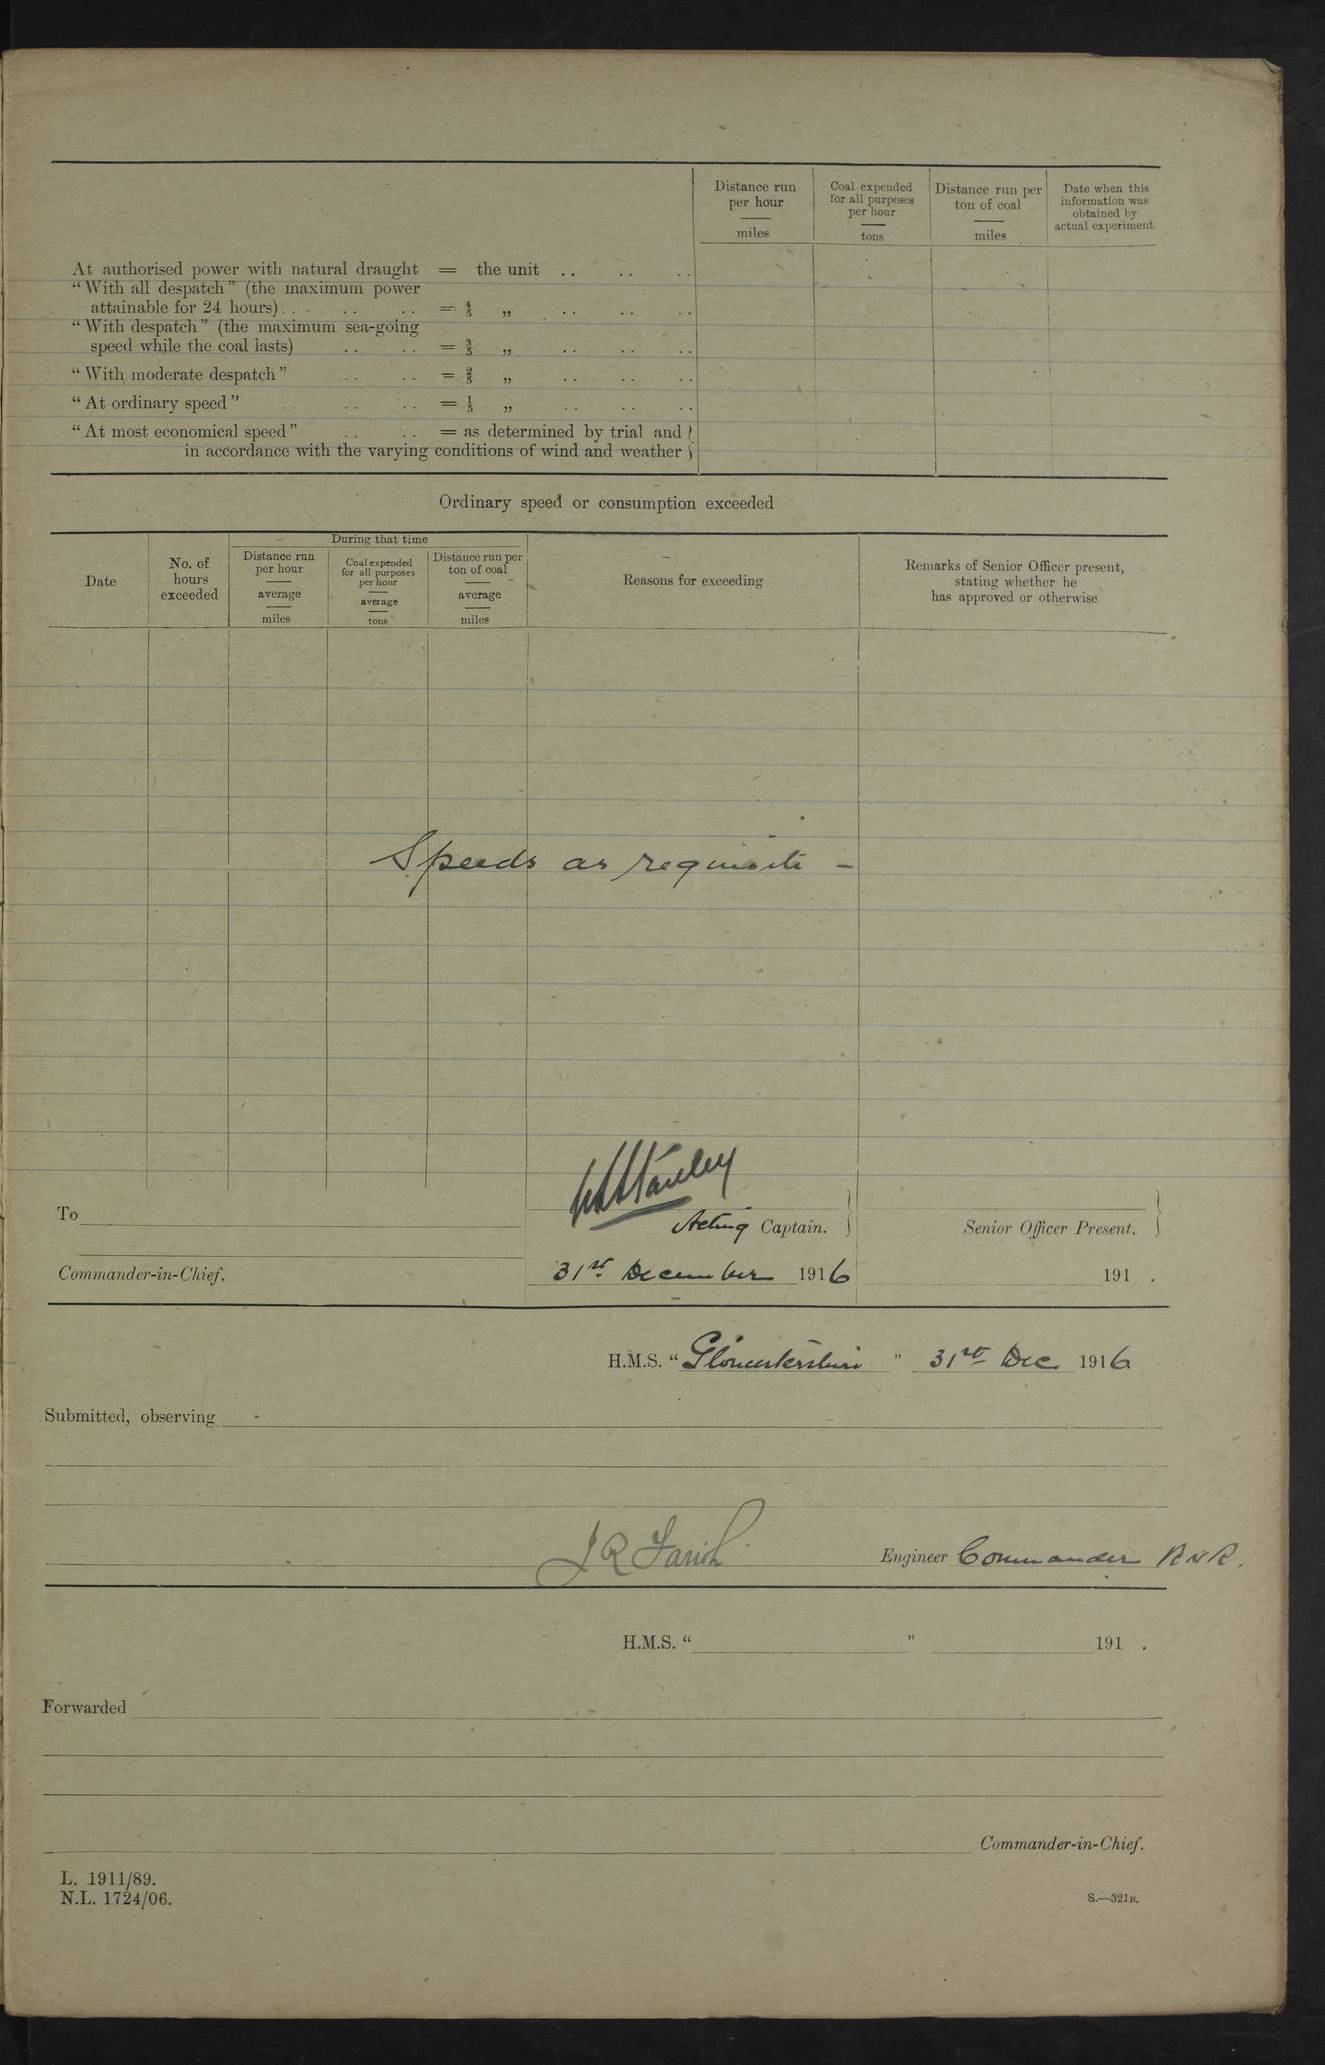 Distance run per hour
miles
Coal expended for all purposes per hour
tons
Distance run per ton of coal
miles
Date when this information was obtained by actual experiment
At authorised power with natural draught = the unit .. .. ..
“With all despatch” (the maximum power
attainable for 24 hours) .. .. .. = 4/5 „ .. .. ..
“With despatch” (the maximum sea-going
speed while the coal lasts) .. .. = 3/5 „ .. .. ..
“With moderate despatch” .. .. = 2/5 „ .. .. ..
“At ordinary speed” .. .. .. = 1/5 „ .. .. ..
“At most economical speed” .. .. = as determined by trial and }
in accordance with the varying conditions of wind and weather }
Ordinary speed or consumption exceeded
Date
No. of hours exceeded
During that time
Distance run per hour
average
miles
Coal expended for all purposes per hour
average
tons
Distance run per ton of coal
average
miles
Reasons for exceeding
Remarks of Senior Officer present,
stating whether he
has approved or otherwise
Speeds as requisite –
To
Acting Captain. }
Senior Officer Present. }
Commander-in-Chief.
31st December 1916
191 .
H.M.S. “Gloucestershire” 31st Dec 1916
Submitted, observing -
J R Farish Engineer Commander RNR.
H.M.S. “ ” 191 .
Forwarded
Commander-in-Chief.
L. 1911/89.
N.L. 1724/06.
S.—321B.